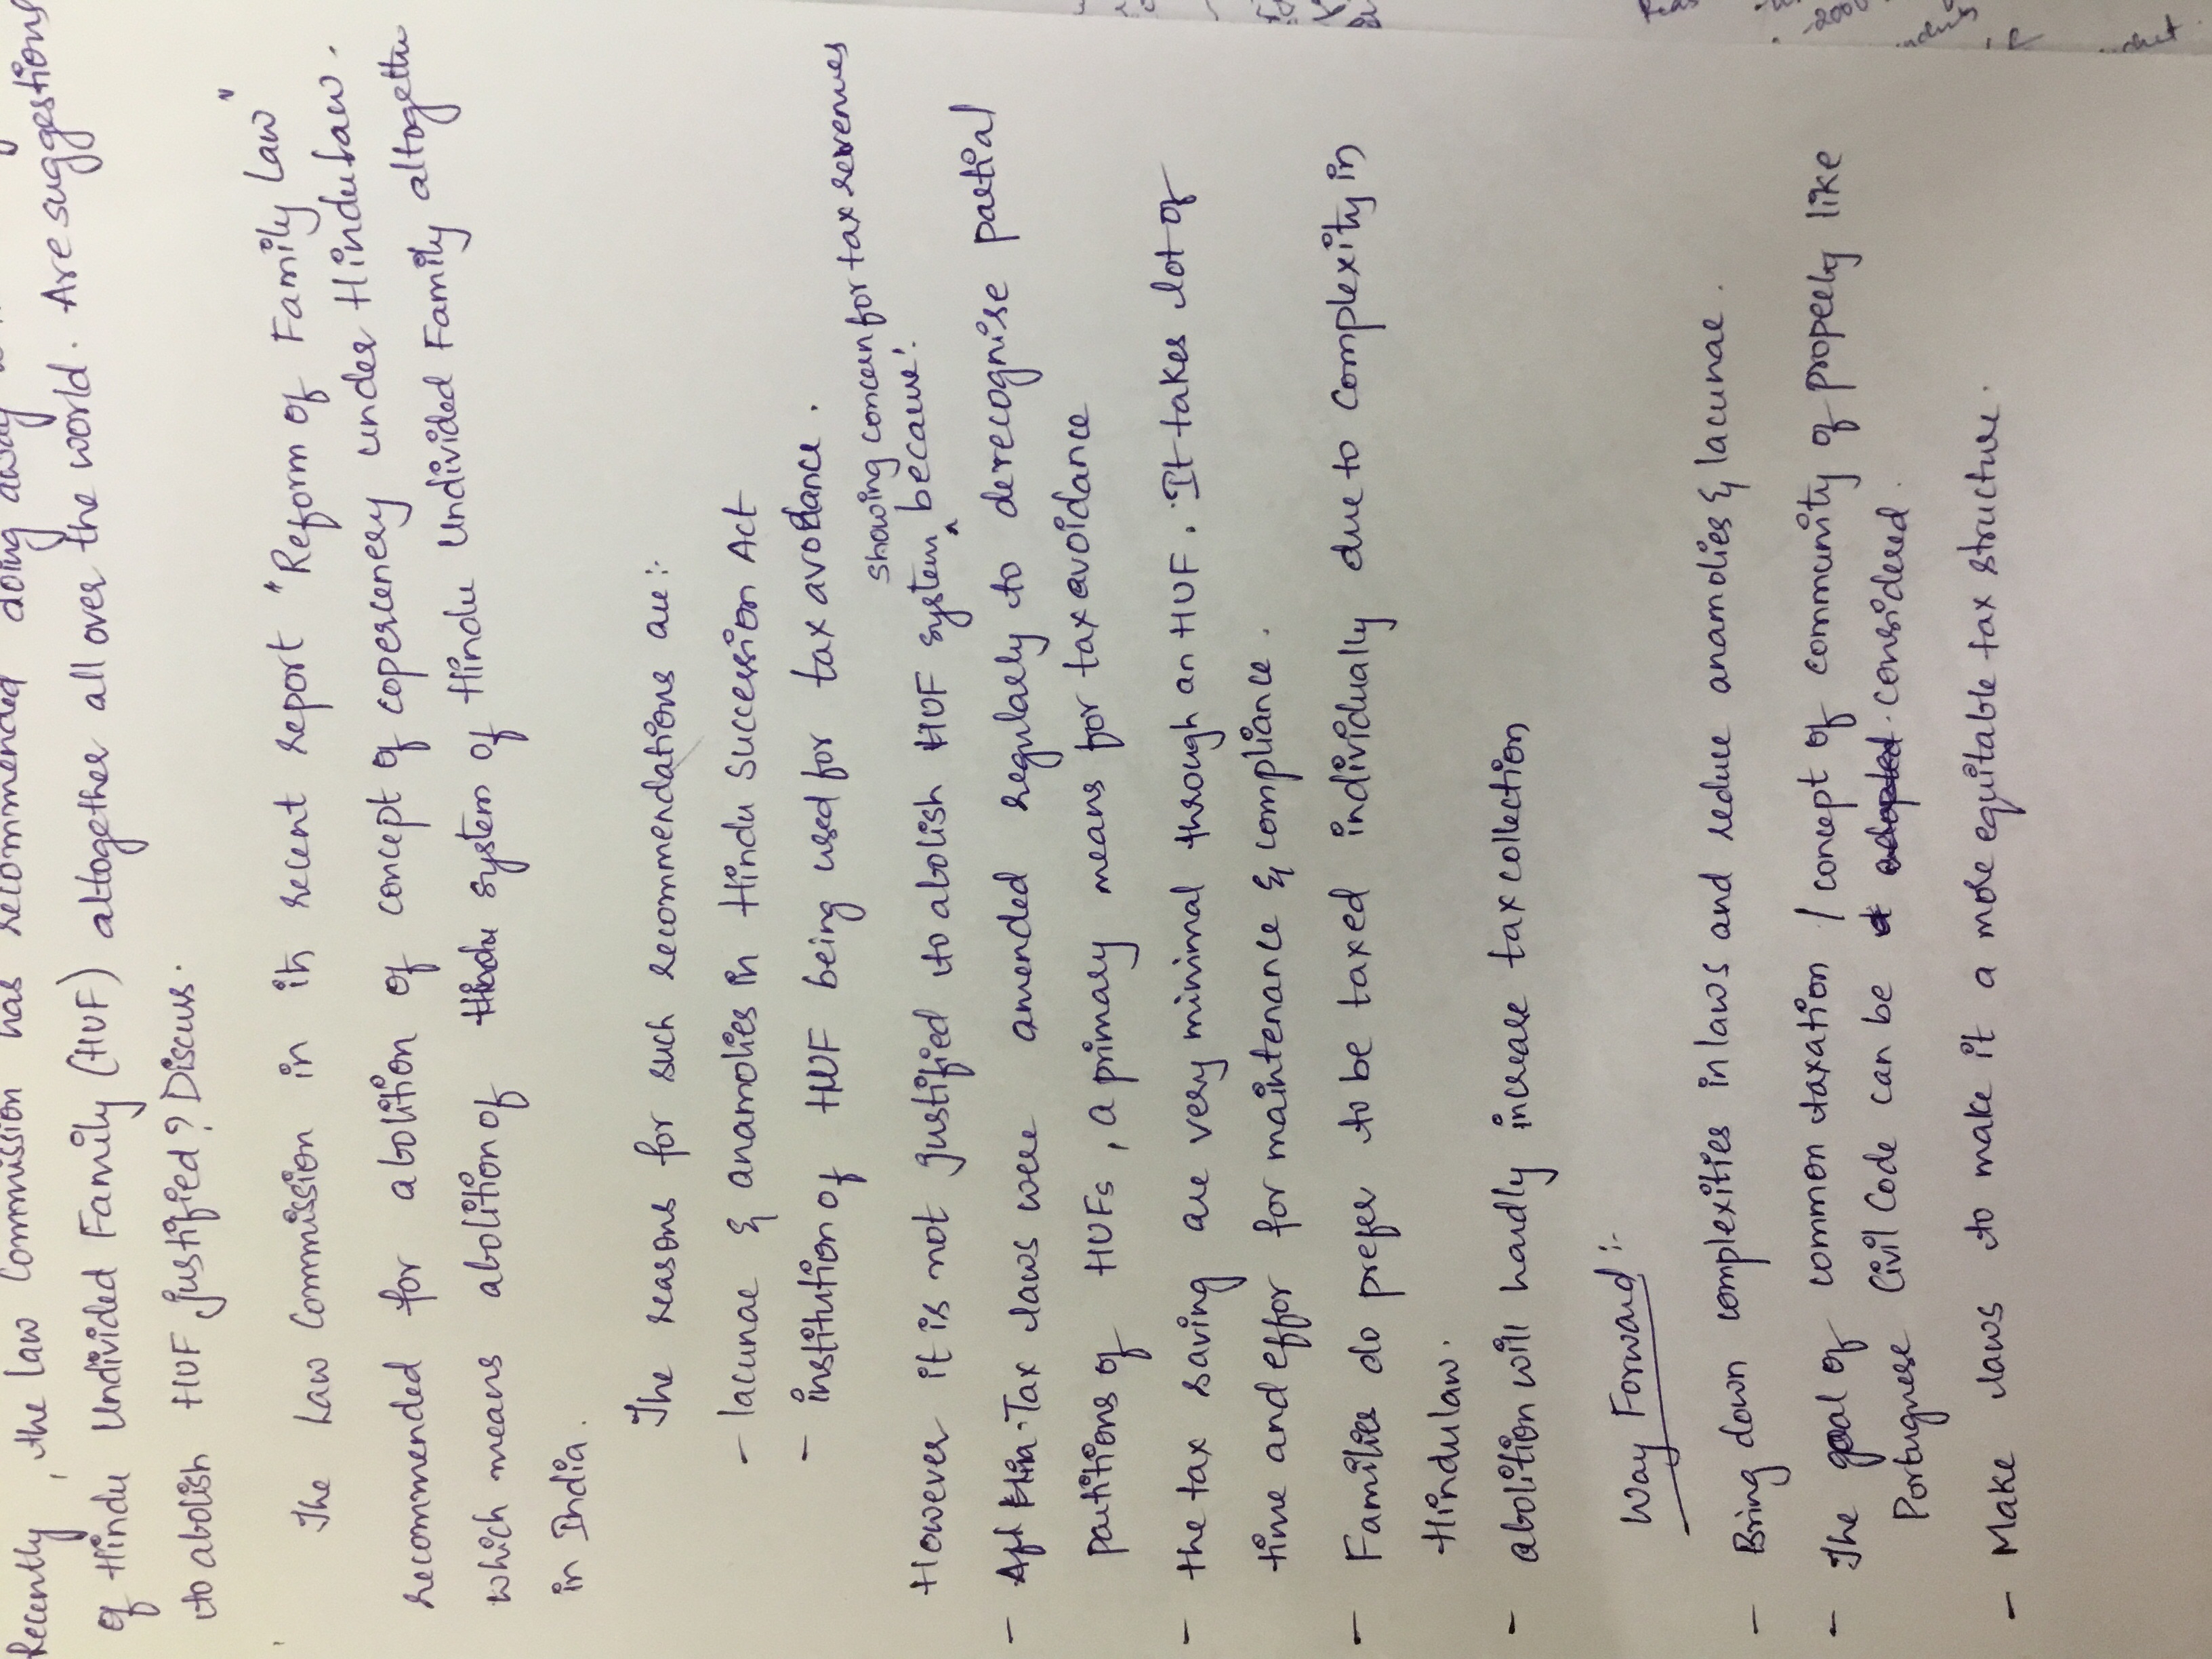 Recently, the Law Commission has recommended doing away
of Hindu Undivided Family (HUF) altogether all over the world. Are suggestions
to abolish HUF justified? Discuss.
The Law Commission in its recent report "Reform of Family Law"
recommended for abolition of concept of coparcenery under Hindu Law.
which means abolition of Hindu system of Hindu Undivided Family altogether
in India.
The reasons for such recommendations are:-
- lacunae & anamolies in Hindu Succession Act
- institution of HUF being used for tax avoidance.
showing concern for tax revenues
However it is not justified to abolish HUF system ^ because:
- Tax laws were amended regularly to derecognise partial
partitions of HUFs, a primary means for tax avoidance
- the tax saving are very minimal through an HUF. It takes lot of
time and effor for maintenance & compliance.
- Families do prefer to be taxed individually due to complexity in
Hindu law.
- abolition will hardly increase tax collection
Way Forward:-
- Bring down complexities in laws and reduce anamolies & lacunae.
- The goal of common taxation / concept of community of property like
Portugnese Civil Code can be adopted considered.
- Make laws to make it a more equitable tax structure.